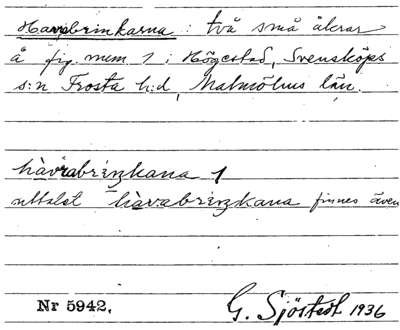 Havrabrinkarna: två små åkrar
å fig. num 1 i Högestad, Svensköps
s:n Frosta h:d, Malmöhus län.
hàvrabriŋkana 1
uttalet hàvrabriŋkana finnes även
Nr 5942. G. Sjöstedt 1936